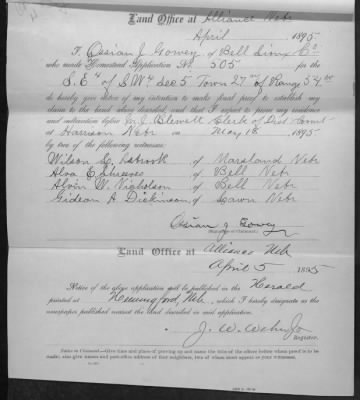 Land Office at Alliance Nebr
April 1895
I, Ossian J. Gowey, of Bell Sioux Co
who made Homestead Application No. 505 for the
S.E 4 of S.W 4 Sec 5 Town 27 N of Range 54 W
do hereby give notice of my intention to make final proof to establish my
claim to the land above described, and that I expect to prove my residence
and cultivation before J. Blewett Clerk of Dist Court
at Harrison Nebr on May 18 1895
by two of the following witnesses:
Wilson E. of Marsland Nebr
Alva E. Shreeves of Bell Nebr
Alvin W. Nicholson of Bell Nebr
Gideon A. Dickinson of Nebr
Ossian J Gowey
(Signature of Claimant.)
Land Office at Alliance Neb
April 5 1895
Notice of the above application will be published in the Herald
printed at Hemingford, Neb, which I hereby designate as the
newspaper published nearest the land described in said application.
J. W.
Register.
Notice to Claimant.—Give time and place of proving up and name the title of the officer before whom proof is to be
made; also give names and post-office address of four neighbors, two of whom must appear as your witnesses.